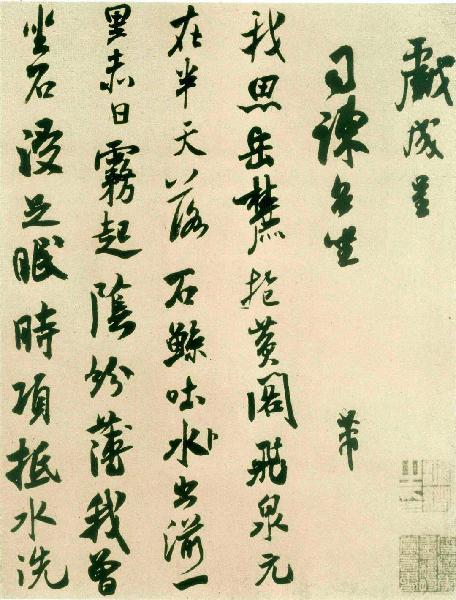 戲成呈
司諫台坐 芾
我思岳麓抱黄閣飛泉元
在半天落石鯨吐水出湔一
里赤日霧起陰紛薄我曾
坐石浸足眠時項抵水洗